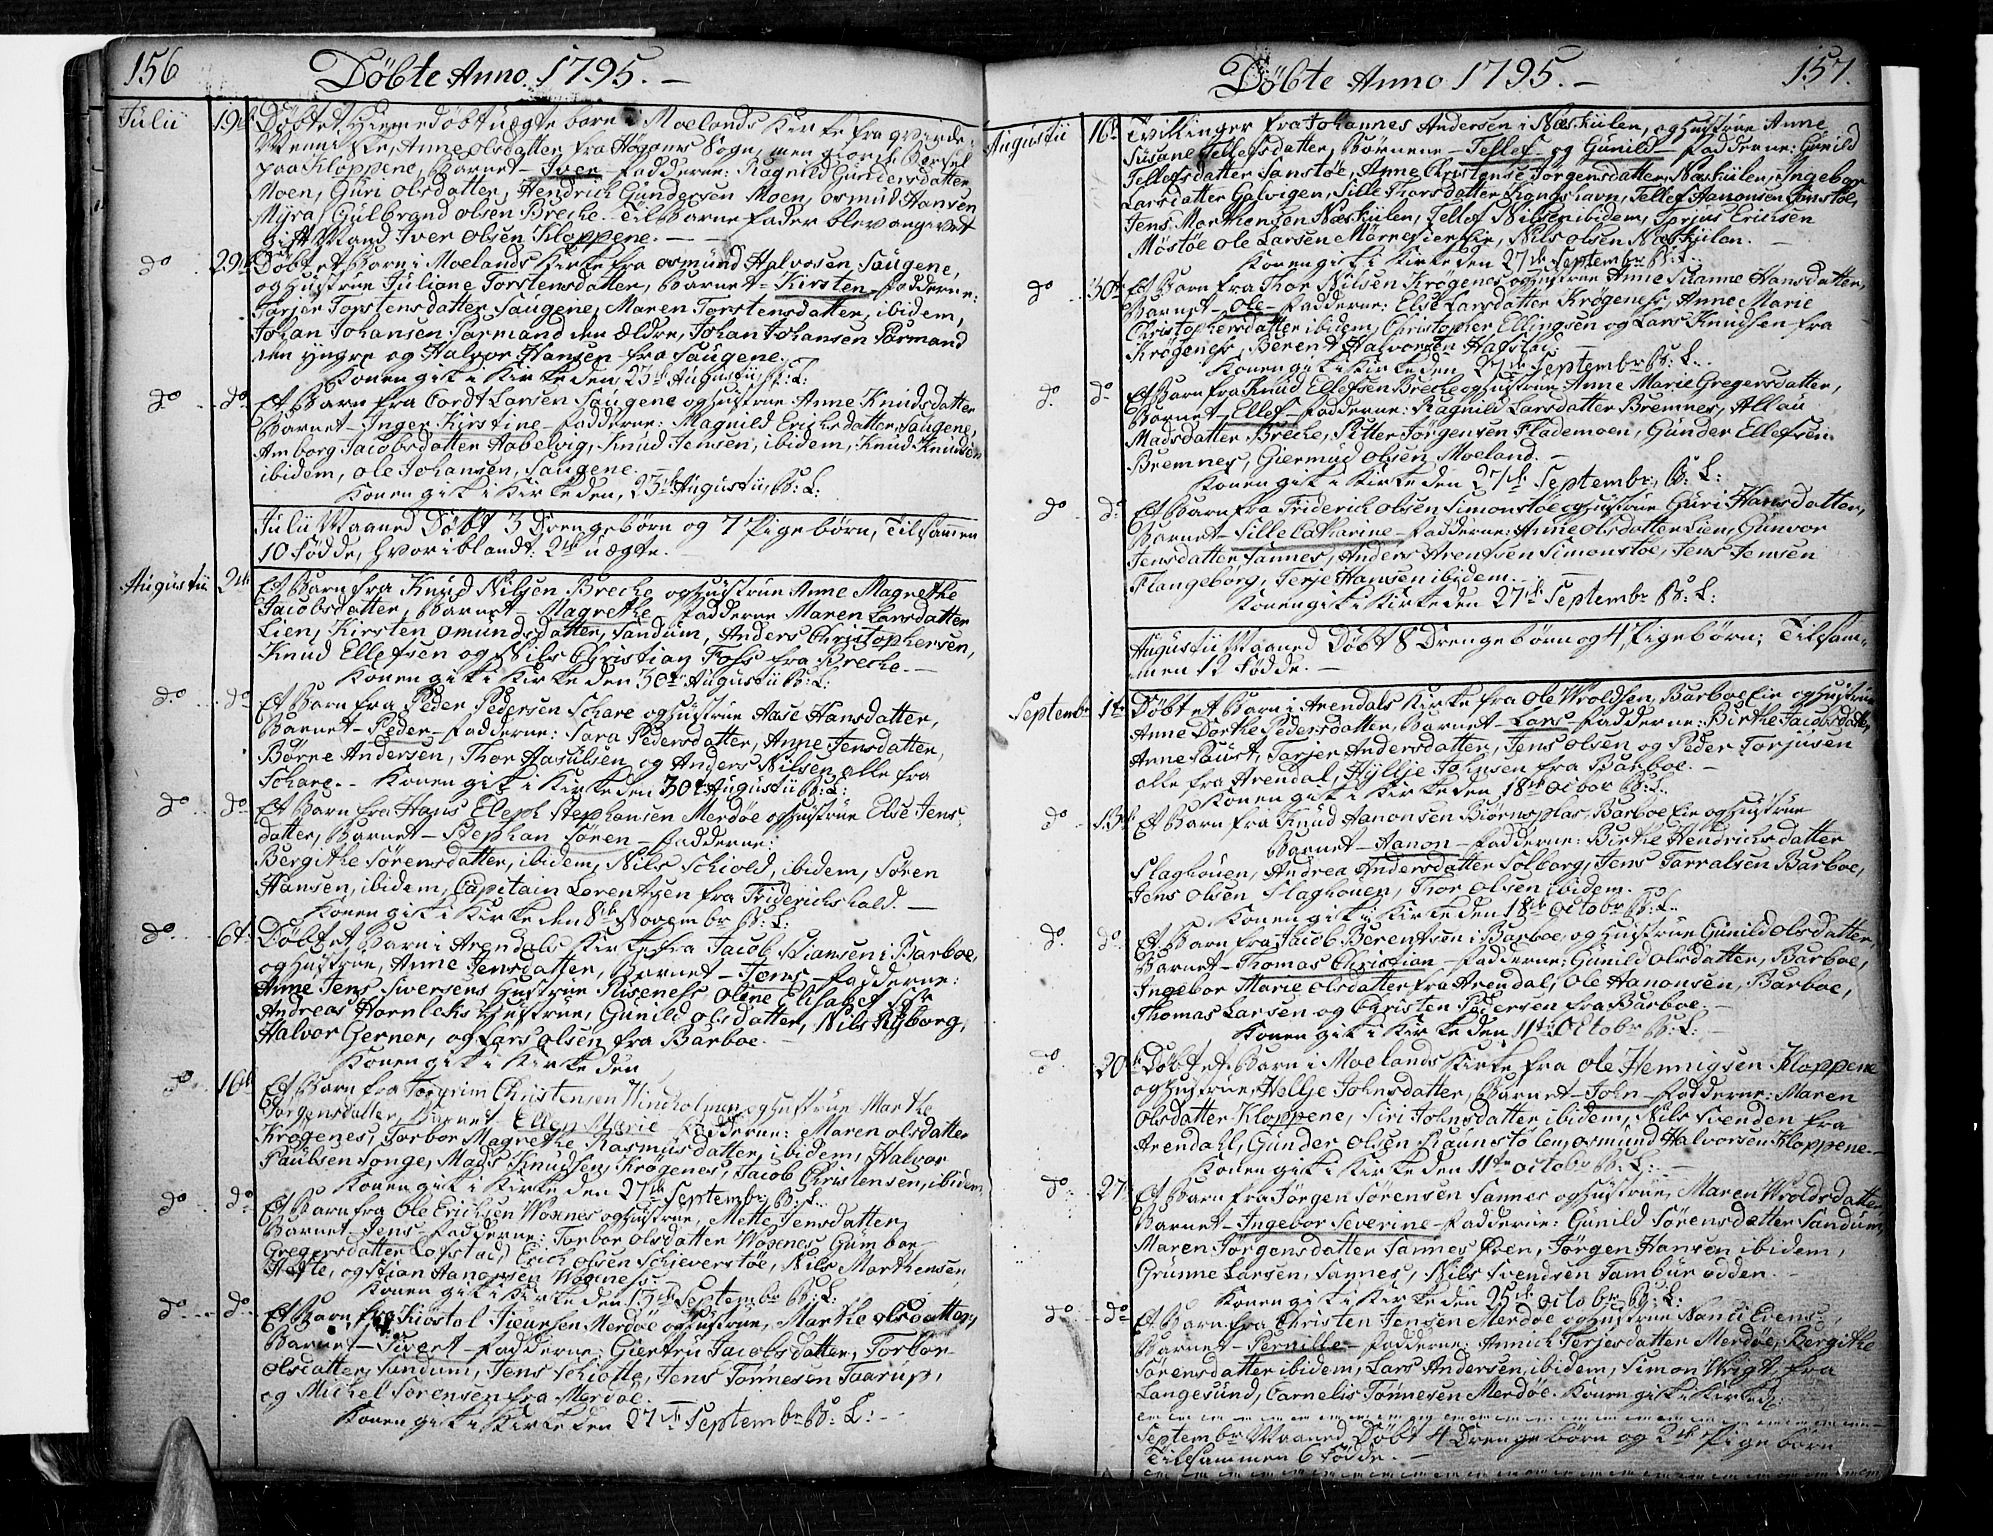 156
Döbte Anno 1795.
Julii 19de Döbtet Hiemmedöbt uægte barn i Moelands Kirke fra qvinde-
Mennisker, Anne Olsdatter fra Sogn, men
paa Kloppene, Barnet - Iver - Fadderne: Ragnild Gundersdatter
Moen, Guri Olsdatter, Hendrich Gundersen Moen, Osmund Hansen
Myra, Gulbrand Olsen Brecke. Til Barnefader blev angivet
gift Mand Iver Olsen Kloppene.
do 29de Döbt et Barn i Moelands Kirke fra Osmund Halvorsen Saugene,
og Hustrue Juliane Torstensdatter, Barnet - Kirsten - Fadderne:
Tarjer Torstensdatter Saugene, Maren Torstensdatter, ibidem,
Johan Johansen Parmand den Ældre, Johan Johansen Parmand
den yngre og Halvor Hansen fra Saugene.
Konen gik i Kirke den 23de Augustii B: L:
do do Et Barn fra Cordt Larsen Saugene og Hustrue Anne Knudsdatter
Barnet - Inger Kirstine - Fadderne: Magnild Erichsdatter, Saugene,
Amborg Jacobsdatter Aabelvig, Knud Jensen, ibidem, Knud Knudsen
ibidem, Ole Johansen, Saugene.
Konen gik i Kirke den, 23de Augustii, B: L:
Julii Maaned Döbt 3 Drengebörn og 7 Pigebörn, Tilsammen
10 Födde, hvoriblandt: 2de uægte.
Augustii 2de Et Barn fra Knud Nilsen Brecke og Hustrue Anne Magrethe
Jacobsdatter, Barnet - Magrethe - Fadderne Maren Larsdatter
Lien, Kirsten Omundsdatter, Sandum, Anders Christophersen,
Knud Ellefsen og Nils Christian Foss fra Brecke.
Konen gik i Kirke den 30te Augustii B: L:
do do Et Barn fra Peder Pedersen Schare og Hustrue Aase Hansdatter,
Barnet - Peder - Fadderne: Sara Pedersdatter, Anne Jensdatter,
Börne Andersen, Thor Aasulsen og Anders Nilsen alle fra
Schare. - Konen gik i Kirke den 30te Augustii B: L:
do do Et Barn fra Hans Eleph Stephansen Merdöe og Hustrue Else Jens-
datter, Barnet - Stephan Sören - Fadderne:
Bergithe Sörensdatter, ibidem, Nils Schiold, ibidem, Sören
Hansen, ibidem, Capitain Lorentsen fra Friderichshald.
Konen gik i Kirke den 8de Novembr B: L:
do 6te Döbt et Barn i Arendals Kirke fra Jacob Stiansen i Barboe
og Hustrue, Anne Jensdatter, Barnet - Jens - Fadderne:
Anne Jens Siversens Hustrue Riseness, Oline Elisabet
Andreas Hornbeks Hustrue, Gunild Olsdatter, Nils Ryborg,
Halvor Gerner, og Lars Olsen fra Barboe.
Konen gik i Kirke den
do 10de Et Barn fra Torgrim Christensen Vindholmen og Hustrue Marthe
Jörgensdatter, Barnet Ellen Marie - Fadderne: Maren Olsdatter
Krögenes, Torbor Magrethe Rasmusdatter, ibidem, Halvor
Paulsen Songe, Mads Knudsen, Krögenes, Jacob Christensen, ibidem
Konen gik i Kirke den 27de Septembr B: L:
do do Et Barn fra Ole Erichsen Woxnes og Hustrue, Mette Jensdatter,
Barnet - Jens - Fadderne: Torbor Olsdatter Woxnes, Gumbor
Gregersdatter Lofstad, Erich Olsen Schieverstöe, Nils Marthensen
og Stian Aanonsen Woxness.
Konen gik i Kirke den 13de Septembr B: L:
do do Et Barn fra Kiöstol Siversen Merdöe og Hustrue, Marthe Olsdatter,
Barnet - Sivert - Fadderne: Giertru Jacobsdatter, Torbor
Olsdatter, Sandum, Jens Schiötte, Jens Tönnesen Taarup,
og Michel Sörensen fra Merdöe.
Konen gik i Kirke den 27de Septembr B: L:
157.
Döbte Anno 1795.
Augustii 16de Tvillinger fra Johannes Andersen i Næskiilen, og Hustrue Anne
Susane Tellefsdatter, Børnene - Tellef og Gunild - Fadderne: Gunild
Tellefsdatter Sanstöe, Anne Christense Jörgensdatter, Næskiilen, Ingebor
Larsdatter Galvigen, Sille Thorsdatter Kongshavn, Tellef Aanonsen Sanstöe,
Jens Marthensen Næskiilen, Tellef Nilsen ibidem, Terjus Erichsen
Möstöe Ole Larsen Mörrefier, Nils Olsen Næskiilen.
Konen gik i Kirke den 27de Septembr B: L:
do 30te Et Barn fra Thor Nilsen Krögenes og Hustrue Anne Susanne Hansdatter,
Barnet - Ole - Fadderne: Else Larsdatter Krögeness, Anne Marie
Christophersdatter ibidem, Christopher Ellingsen og Lars Knudsen fra
Krögeness, Berend Halvorsen Hafstad.
Konen gik i Kirke den 27de Septembr B: L:
do do Et Barn fra Knud Ellefsen Brecke og Hustrue Anne Marie Gregersdatter,
Barnet - Ellef - Fadderne: Ragnild Larsdatter Bremnes, Allau
Madsdatter Brecke, Pitter Jörgensen Flademoen, Gunder Ellefsen
Bremnes, Giermud Olsen Moeland.
Konen gik i Kirke den 27de Septembr, B: L:
do do Et Barn fra Friderich Olsen Simonstöe og Hustrue Guri Hansdatter,
Barnet - Sille Catharine - Fadderne: Anne Olsdatter Lien, Gunvor
Jensdatter Sannes, Anders Arentsen Simonstöe, Jens Jensen
Flangeborg, Terje Hansen ibidem.
Konen gik i Kirke den 27de Septembr B: L:
Augustii Maaned Döbt 8 Drengebörn og 4 Pigebörn; Tilsam-
men 12 Födde.
Septembr 1te Döbt et Barn i Arendals Kirke fra Ole Wroldsen, Barboe Eie og Hustrue
Anne Dorthe Pedersdatter, Barnet - Lars - Fadderne: Birthe Jacobsdatter,
Anne Faust, Tarjer Andersdatter, Jens Olsen og Peder Torjusen
alle fra Arendal, Hyllje Johnsen fra Barboe.
Konen gik i Kirke den 18de Octobr B: L:
do 13de Et Barn fra Knud Aanonsen Biörnsplas, Barboe Eie og Hustrue
Barnet - Aanon - Fadderne: Birthe Hendrichsdatter
Flaghouen, Andrea Andersdatter Solborg, Jens Tarralsen Barboe,
Jens Olsen Flaghouen, Thor Olsen ibidem.
Konen gik i Kirke den 18de Octobr B: L:
do do Et Barn fra Jacob Berentsen i Barboe, og Hustrue Gunild Olsdatter,
Barnet - Thomas Christian - Fadderne: Gunild Olsdatter, Barboe,
Ingebor Marie Olsdatter fra Arendal, Ole Aanonsen, Barboe,
Thomas Larsen og Christen Pedersen fra Barboe.
Konen gik i Kirke den 11te Octobr B: L:
do 20de Döbt et Barn i Moelands Kirke fra Ole Hennigsen Kloppene
og Hustrue, Hellje Johnsdatter, Barnet - John - Fadderne: Maren
Olsdatter Kloppene, Siri Johnsdatter ibidem, Nils Svenden fra
Arendall, Gunder Olsen Osmund Halvorsen Kloppene.
Konen gik i Kirke den 11te Octobr B: L:
do 27 Et Barn fra Jörgen Sörensen Sannes og Hustrue, Maren Wroldsdatter
Barnet - Ingebor Severine - Fadderne: Gunild Sörensdatter Sandum,
Maren Jörgensdatter Sannes Öen, Jörgen Hansen ibidem,
Grunne Larsen, Sannes, Nils Svendsen Tambur odden.
Konen gik i Kirke den 25de Octobr B: L:
do do Et Barn fra Christen Jensen Merdöe og Hustrue Nanci Evens,
Barnet - Pernille - Fadderne: Annich Terjesdatter Merdöe, Bergithe
Sörensdatter ibidem, Lars Andersen, ibidem, Simon Wrigt fra
Langesund, Cornelis Tönnesen Merdöe. Konen gik i Kirke d:
Septembr Maaned Döbt 4 Drengebörn og 2de Pigebörn
Tilsammen 6 Födde.